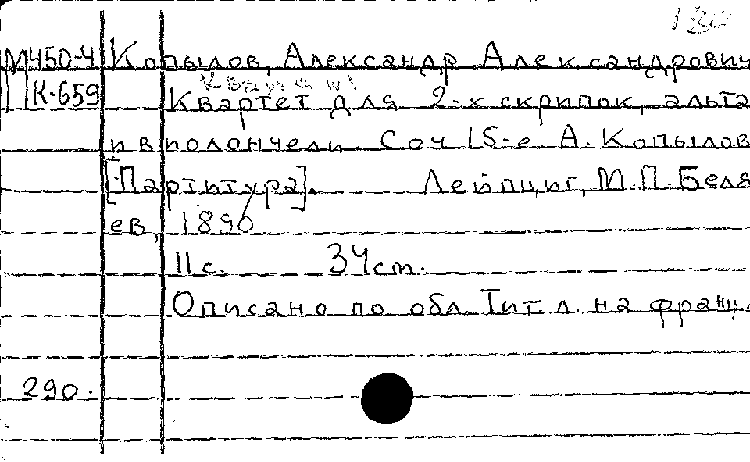 М450-4 Копылов, Александр Александрович
К-659 Квартет для 2-х скрипок, альта
и виолончели Соч 15-е А. Копылов
[Партитура]. Лейпциг, М.П. Беля
ев, 1890
11с. 34см.
Описано по обл. Тит.л. на франц.
290.